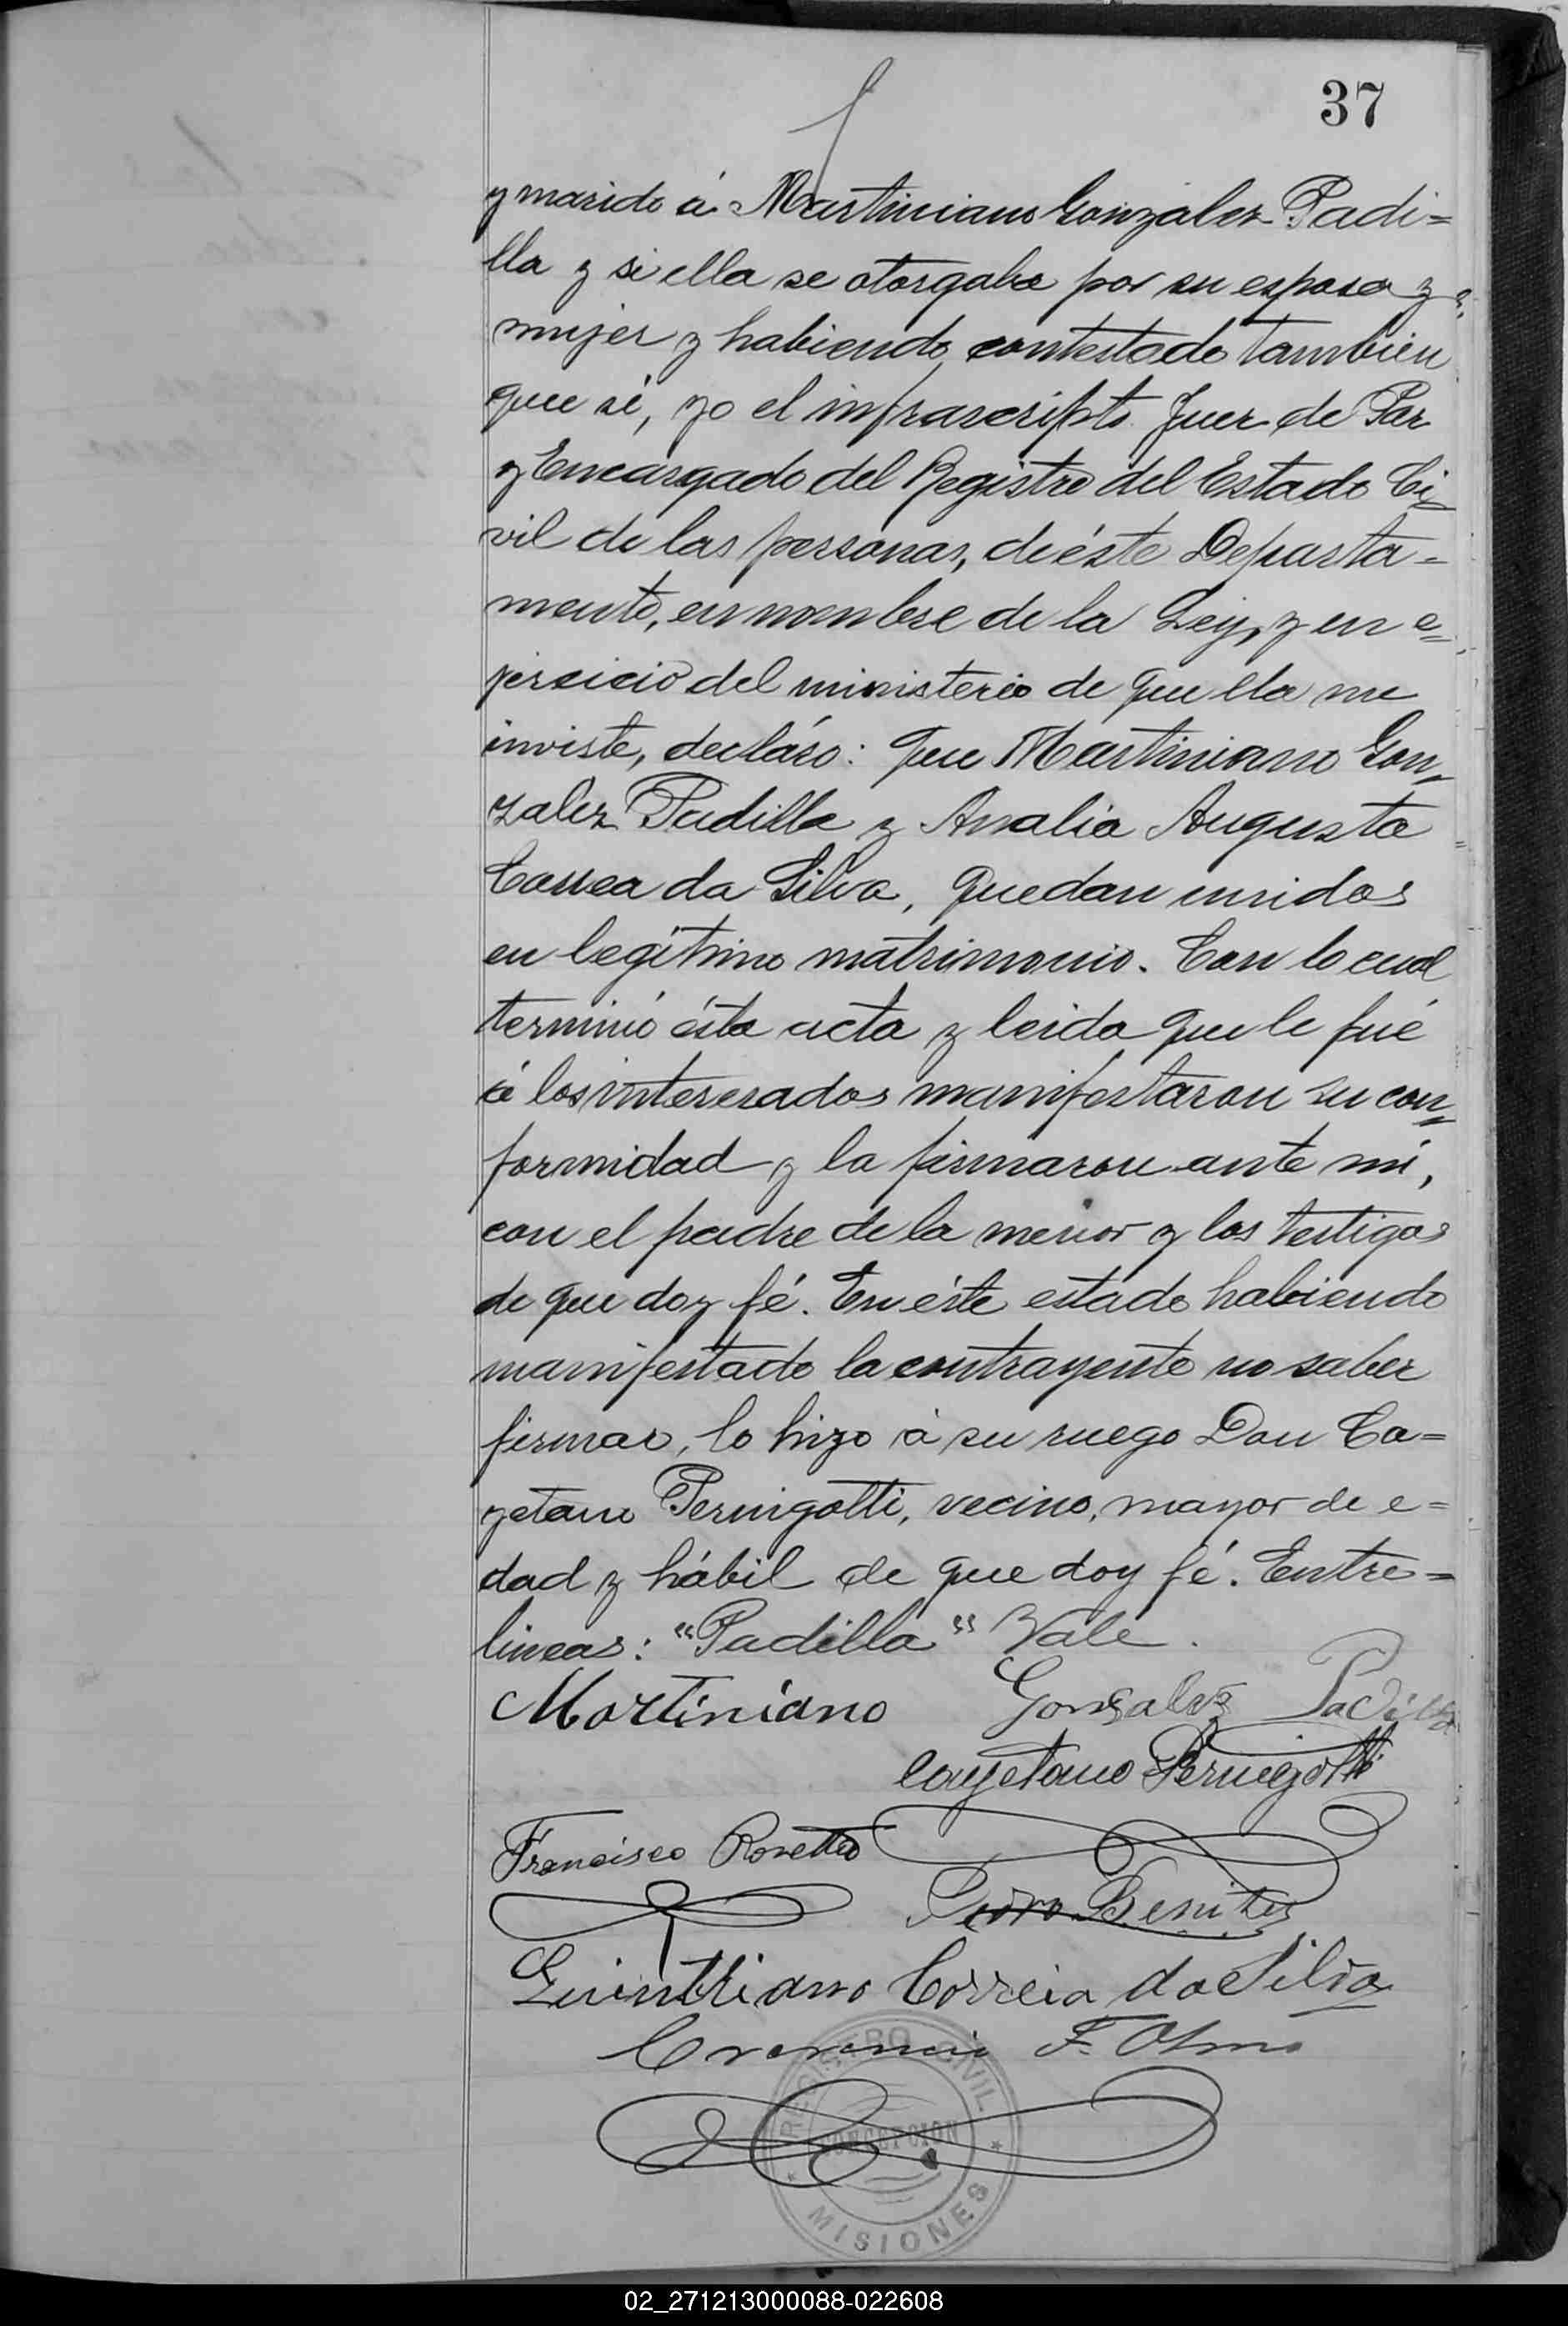 37
y marido á Martiniano Gonzalez Padi=
lla y si ella se otorgaba por su esposa y
mujer y habiendo contestado tambien
que si, yo el infrascripto Juez de Paz
y Encargado del Registro del Estado Ci=
vil de las personas, de éste Departa=
mento, en nombre de la Ley, y en e=
jercicio del ministerio de que ella me
inviste, decláro: que Martiniano Gon=
zalez Padilla y Analia Augusta
Correa da Silva, quedan unidos
en legítimo matrimonio. Con lo cual
terminó ésta acta y leida que le fué
á los interesados manifestaron su con=
formidad y la firmaron ante mí,
con el padre de la menor y los testigos
de que doy fé. En éste estado habiendo
manifestado la contrayente no saber
firmar, lo hizo á su ruego Don Ca=
yetano Pernigotti, vecino, mayor de e=
dad y hábil de que doy fé. Entre=
lineas: "Padilla" Vale.
Martiniano Gonzalez Padilla
Cayetano Pernigotti
Francisco Rovetto
Pedro Benitez
Correia da Silva
F. Olmo
REGISTRO CIVIL
CONCEPCION
* MISIONES *
02_271213000088-022608